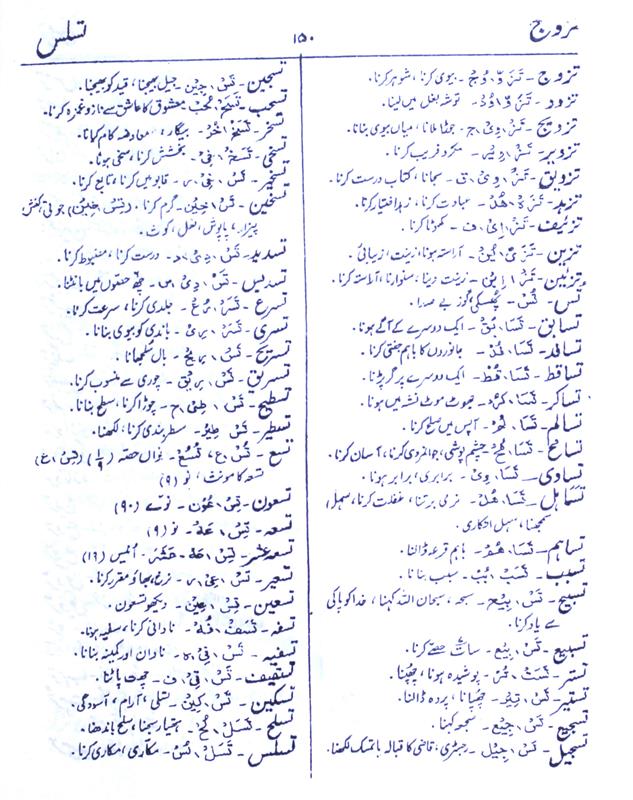 تزوج
۱۵۰
تسلس
تزوج - تَ زَ وْ وُ جْ - بیوی کرنا، شوہر کرنا.
تزود - تَ زَ وْ وُ دْ - توشہ بغل میں لینا.
تزویج - تَ زْ وِیْ ج - جوڑا ملانا، میاں بیوی بنانا.
تزویر - تَ زْ وِیْ ر - مکرو فریب کرنا.
تزویق - تَ زْ وِیْ ق - سجانا، کتاب درست کرنا.
تزہد - تَ زَ ہْ ہُ دْ - عبادت کرنا، زہد اختیار کرنا.
تزئیف - تَ زْ اِیْ ف - کھوٹا کرنا.
تزین - تَ زَ یْ یُ نْ - آراستہ ہونا، زینت، زیبائی.
تزئین - تَ زْ اِیْ نْ - زینت دینا، سنوارنا، آراستہ کرنا.
تس - تُسْ - پھسکی، گوز بے صدا.
تسابق - تَسَا بُقْ - ایک دوسرے کے آگے ہونا.
تسافد - تَسَا فُدْ - جانوروں کا باہم جفتی کرنا.
تساقط - تَسَا قُطْ - ایک دوسرے پر گر پڑنا.
تساکر - تَسَا کُرْ - جھوٹ موٹ نشہ میں ہونا.
تسالم - تَسَا لُمْ - آپس میں صلح کرنا.
تسامح - تَسَا مُحْ - چشم پوشی، جوانمردی کرنا، آسان کرنا.
تساوی - تَسَا وِیْ - برابری، برابر ہونا.
تساہل - تَسَا ہُلْ - نرمی برتنا، غفلت کرنا، سہل
سمجھنا، سہل انکاری.
تساہم - تَسَا ہُمْ - باہم قرعہ ڈالنا.
تسبب - تَسَبْ بُبْ - سبب بنانا.
تسبیح - تَسْ بِیْح - سبحہ، سبحان اللہ کہنا، خدا کو پاکی
سے یاد کرنا.
تسبیع - تَسْ بِیْع - سات حصے کرنا.
تستر - تَسَتْ تُرْ - پوشیدہ ہونا، چھپنا.
تستیر - تَسْ تِیْر - چھپانا، پردہ ڈالنا.
تسجیع - تَسْ جِیْع - سجع کہنا.
تسجیل - تَسْ جِیْل - رجسٹری، قاضی کا قبالہ یا تمسک لکھنا.
تسجین - تَسْ جِیْن - جیل بھیجنا، قید کو بھیجنا.
تسحب - تَسَحْ حُبْ - معشوق کا عاشق سے نازو غمزہ کرنا.
تسخر - تَسَخْ خُرْ - بیگار، معاوضہ کام کرانا.
تسخی - تَسَخْ خِیْ - بخشش کرنا، سخی ہونا.
تسخیر - تَسْ خِیْ ر - قابو میں کرنا، تابع کرنا.
تسخین - تَسْ خِیْن - گرم کرنا. (تِسْ خِیْن) جوتی، کفش
پیزار، پاپوش، نعل،
تسدید - تَسْ دِیْ د - درست کرنا، مضبوط کرنا.
تسدیس - تَسْ دِیْ س - چھ حصوں میں بانٹنا.
تسرع - تَسَرْ رُعْ - جلدی کرنا، سرعت کرنا.
تسری - تَسَرْ رِیْ - باندی کو بیوی بنانا.
تسریح - تَسْ رِیْح - بال سلجھانا.
تسریق - تَسْ رِیْق - چوری سے منسوب کرنا.
تسطیح - تَسْ طِیْ ح - چوڑا کرنا، سطح بنانا.
تسطیر - تَسْ طِیْر - سطر بندی کرنا، لکھنا.
تسع - تُسْ ع، تُسُعْ - نواں حصہ (۱/۹) (تِسْ ع)
تسعہ کا مونث، نو (۹)
تسعون - تِسْ عُوْن - نوے (۹۰)
تسعہ - تِسْ عَہْ - نو (۹)
تسعہ عشر - تِسْ عَہْ عَشَرْ - انیس (۱۹)
تسعیر - تَسْ عِیْ ر - نرخ، بھاؤ مقرر کرنا.
تسعین - تِسْ عِیْن - دیکھو تسعون.
تسفہ - تَسَفْ فُہْ - نادانی کرنا، سفلہ ہونا.
تسفیہ - تَسْ فِیْ ہ - نادان اور کمینہ بنانا.
تسقیف - تَسْ قِیْ ف - چھت پاٹنا.
تسکین - تَسْ کِیْن - تسلی، آرام، آسودگی.
تسلح - تَسَلْ لُحْ - ہتھیار سجنا، سلح باندھنا.
تسلس - تَسَلْ لُسْ - مکاری، مکاری کرنا.